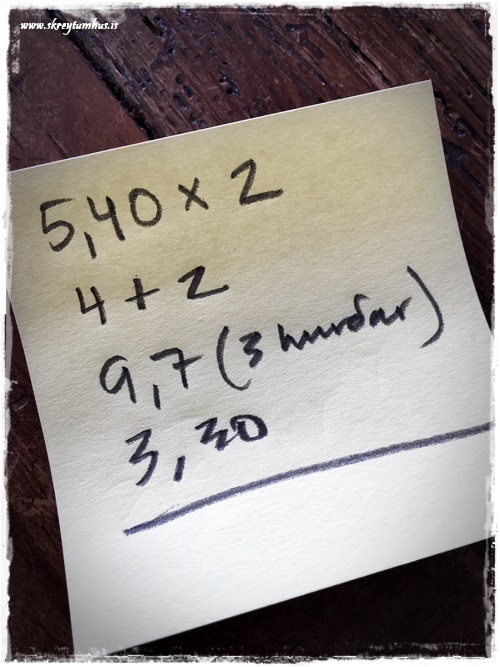 www.skreytumhus.is
5,40 x 2
4 + 2
9,7 (3 hurðar)
3,30